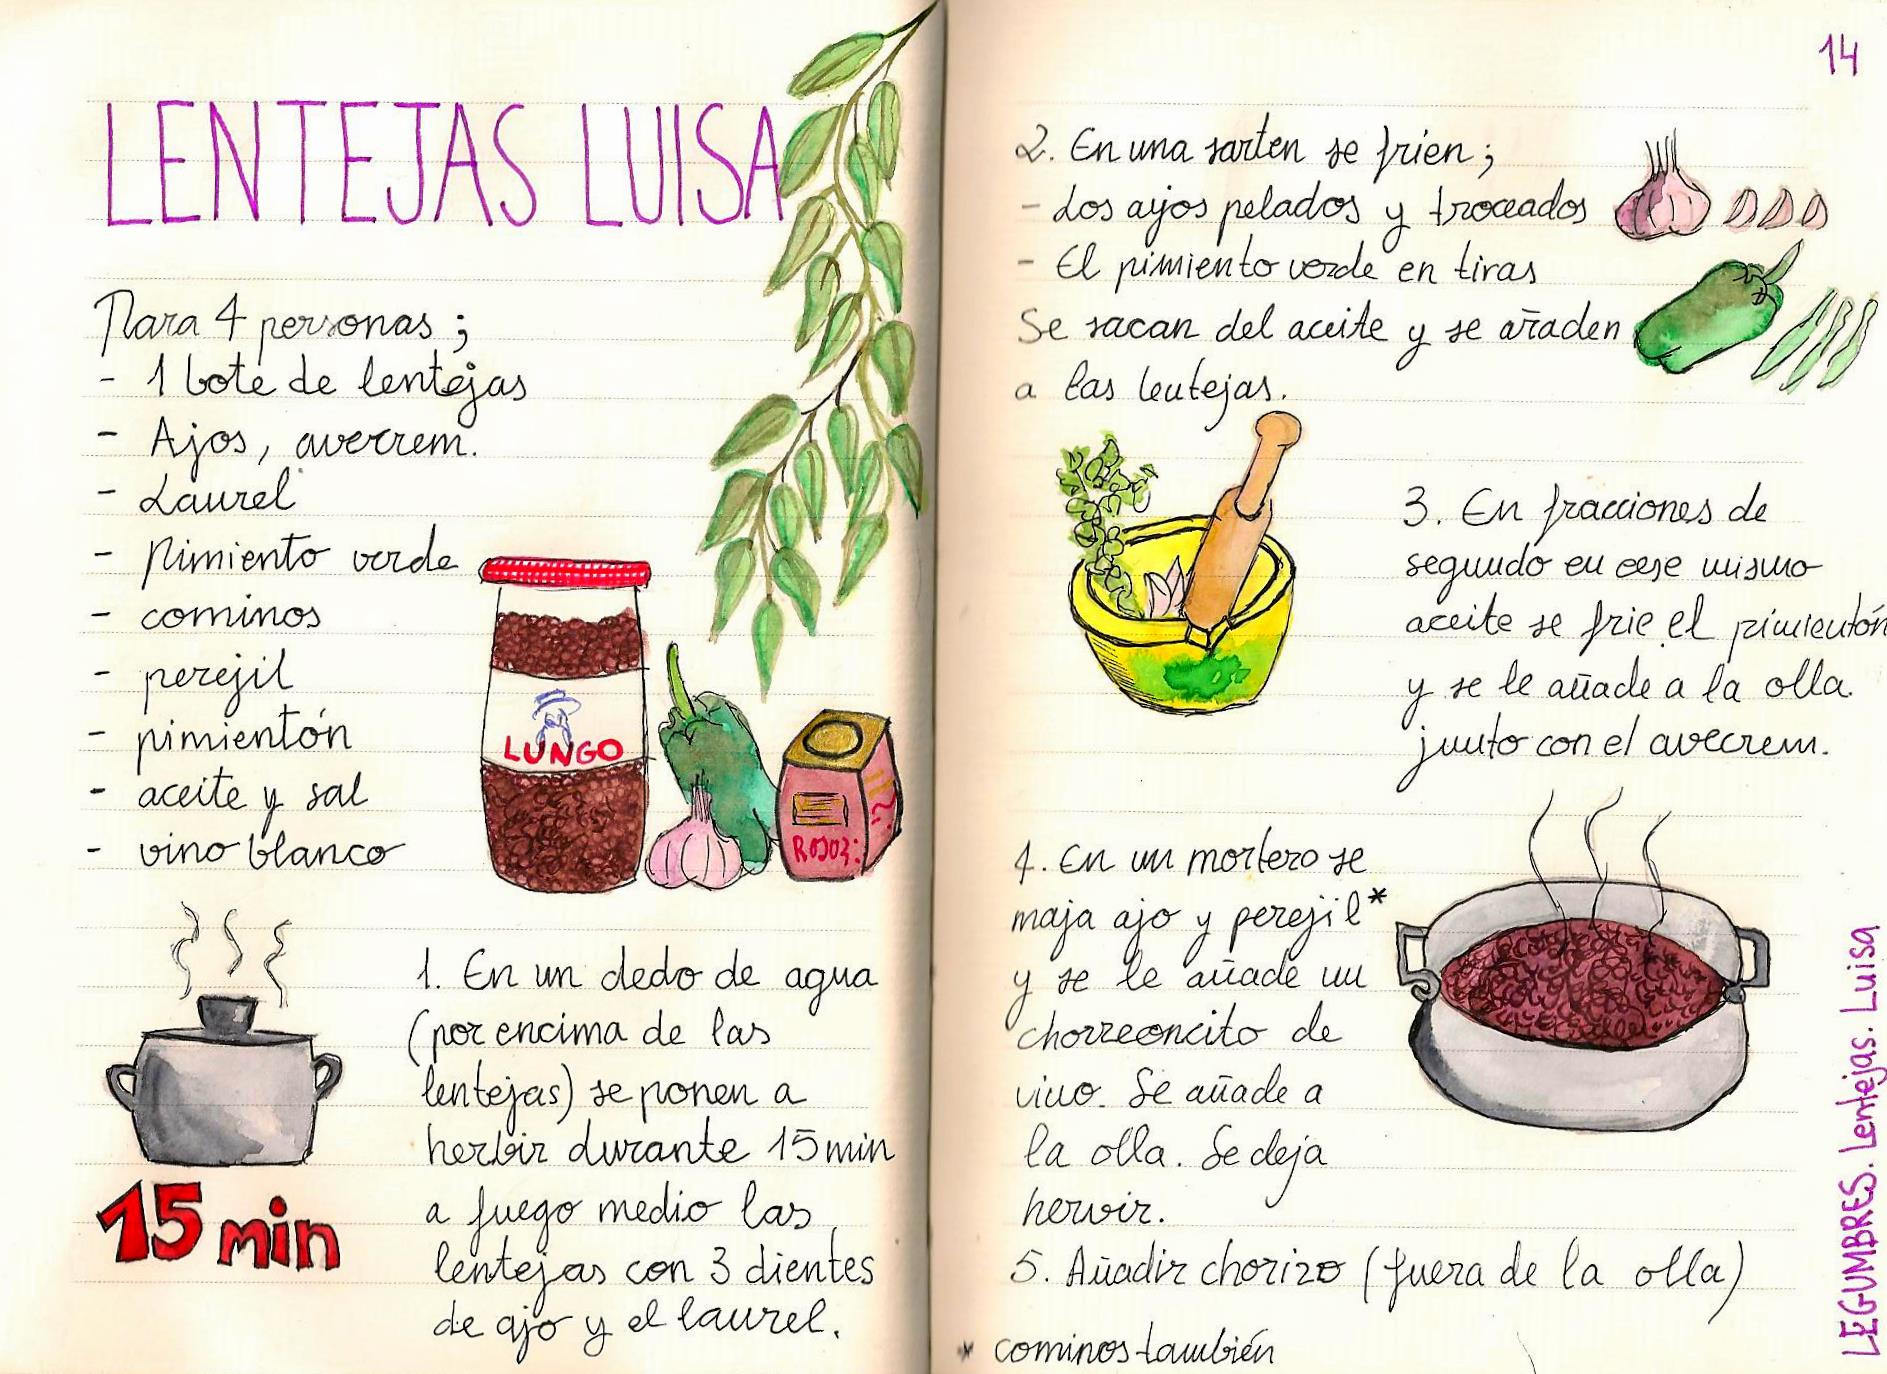 LENTEJAS LUISA
Para 4 personas;
- 1 bote de lentejas
- Ajos, avecrem.
- Laurel
- Pimiento verde
- cominos
- perejil
- pimientón
- aceite y sal
- vino blanco
LUNGO
ROJOZ:
15 min
1. En un dedo de agua
(por encima de las
lentejas) se ponen a
herbir durante 15 min
a fuego medio las
lentejas con 3 dientes
de ajo y el laurel.
14
2. En una sarten se frien;
- Los ajos pelados y troceados
- El pimiento verde en tiras
Se sacan del aceite y se añaden
a las lentejas.
3. En fracciones de
segundo en ese mismo
aceite se frie el pimientón
y se le añade a la olla
junto con el avecrem.
4. En un mortero se
maja ajo y perejil*
y se le añade un
chorreoncito de
vino. Se añade a
la olla. Se deja
hervir.
5. Añadir chorizo (fuera de la olla)
* cominos también
LEGUMBRES. Lentejas. Luisa